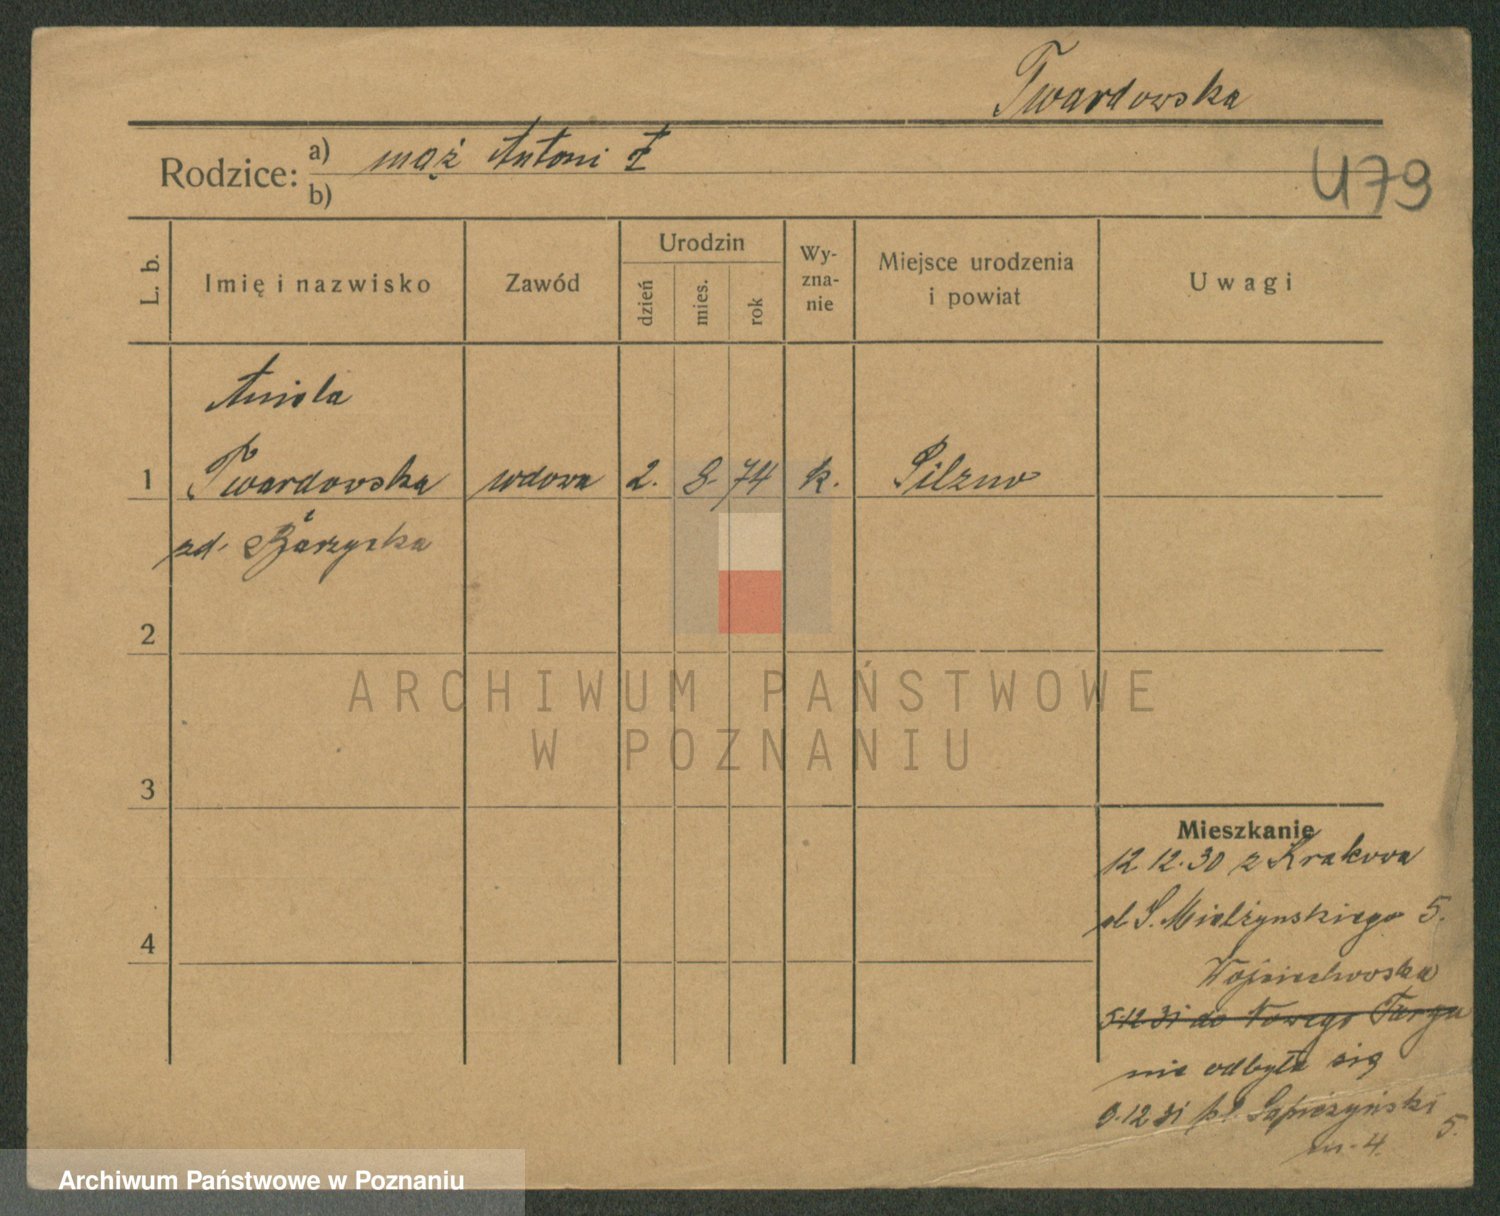 Twardowska
Rodzice: a) mąż Antoni ł
b)
479
L. b.
Imię i nazwisko
Zawód
Urodzin
dzień
mies.
rok
Wy-
zna-
nie
Miejsce urodzenia
i powiat
Uwagi
Aniela
1 Twardowska wdowa 2. 8. 74 k. Pilzno
zd.
2
3
4
Mieszkanie
12 12.30 z Krakowa
ul S. Mielżynskiego 5.
Wojciechowska
5.12.31 do Nowego Targu
nie odbyła się
9.12 31 pl. Sapieżyński 5.
m. 4.
ARCHIWUM PAŃSTWOWE
W POZNANIU
Archiwum Państwowe w Poznaniu